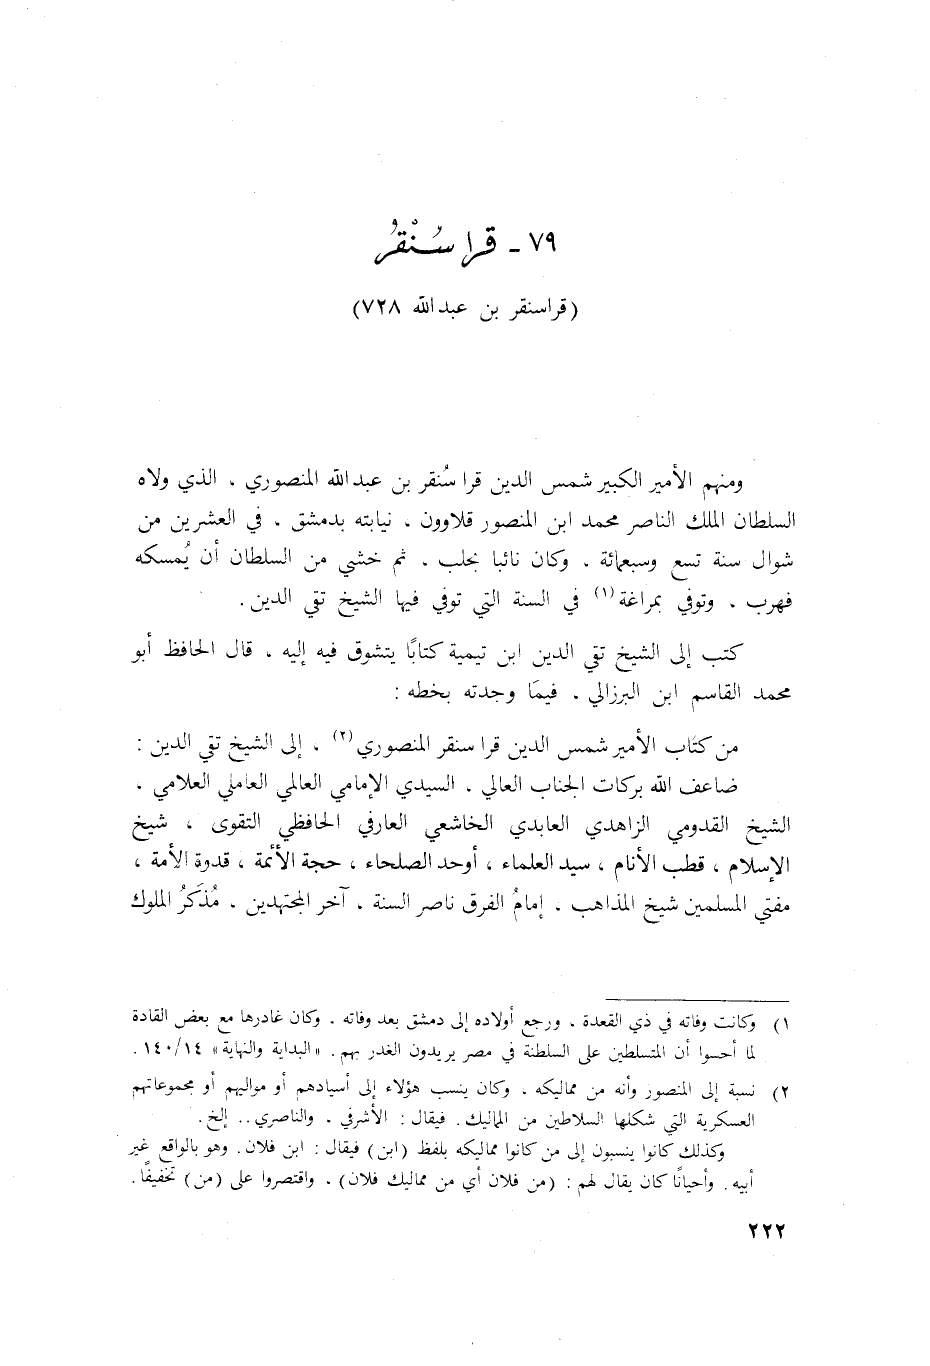 ٧٩ - قرا سُنْقُر
(قراسنقر بن عبدالله ٧٢٨)
ومنهم الأمير الكبير شمس الدين قرا سُنقر بن عبدالله المنصوري ، الذي ولاه
السلطان الملك الناصر محمد ابن المنصور قلاوون ، نيابته بدمشق ، في العشرين من
شوال سنة تسع وسبعمائة ، وكان نائبا بحلب ، ثم خشي من السلطان أن يُمسكه
فهرب ، وتوفي بمراغة(١) في السنة التي توفي فيها الشيخ تقي الدين.
كتب إلى الشيخ تقي الدين ابن تيمية كتابًا يتشوق فيه إليه ، قال الحافظ أبو
محمد القاسم ابن البرزالي ، فيمَا وجدته بخطه :
من كتَاب الأمير شمس الدين قرا سنقر المنصوري(٢) ، إلى الشيخ تقي الدين :
ضاعف الله بركات الجناب العالي ، السيدي الإمامي العالمي العاملي العلامي ،
الشيخ القدومي الزاهدي العابدي الخاشعي العارفي الحافظي التقوى ، شيخ
الإسلام ، قطب الأنام ، سيد العلماء ، أوحد الصلحاء ، حجة الأئمة ، قدوة الأمة ،
مفتي المسلمين شيخ المذاهب ، إمامُ الفرق ناصر السنة ، آخر المجتهدين ، مُذَكرُ الملوك
١) وكانت وفاته في ذي القعدة ، ورجع أولاده إلى دمشق بعد وفاته ، وكان غادرها مع بعض القادة
لما أحسوا أن المتسلطين على السلطنة في مصر يريدون الغدر بهم. «البداية والنهاية» ١٤٠/١٤.
٢) نسبة إلى المنصور وأنه من مماليكه ، وكان ينسب هؤلاء إلى أسيادهم أو مواليهم أو مجموعاتهم
العسكرية التي شكلها السلاطين من المماليك. فيقال : الأشرفي ، والناصري.. إلخ.
وكذلك كانوا ينسبون إلى من كانوا مماليكه بلفظ (ابن) فيقال : ابن فلان. وهو بالواقع غير
أبيه. وأحيانًا كان يقال لهم : (من فلان أي من مماليك فلان) ، واقتصروا على (من) تخفيفًا.
٢٢٢